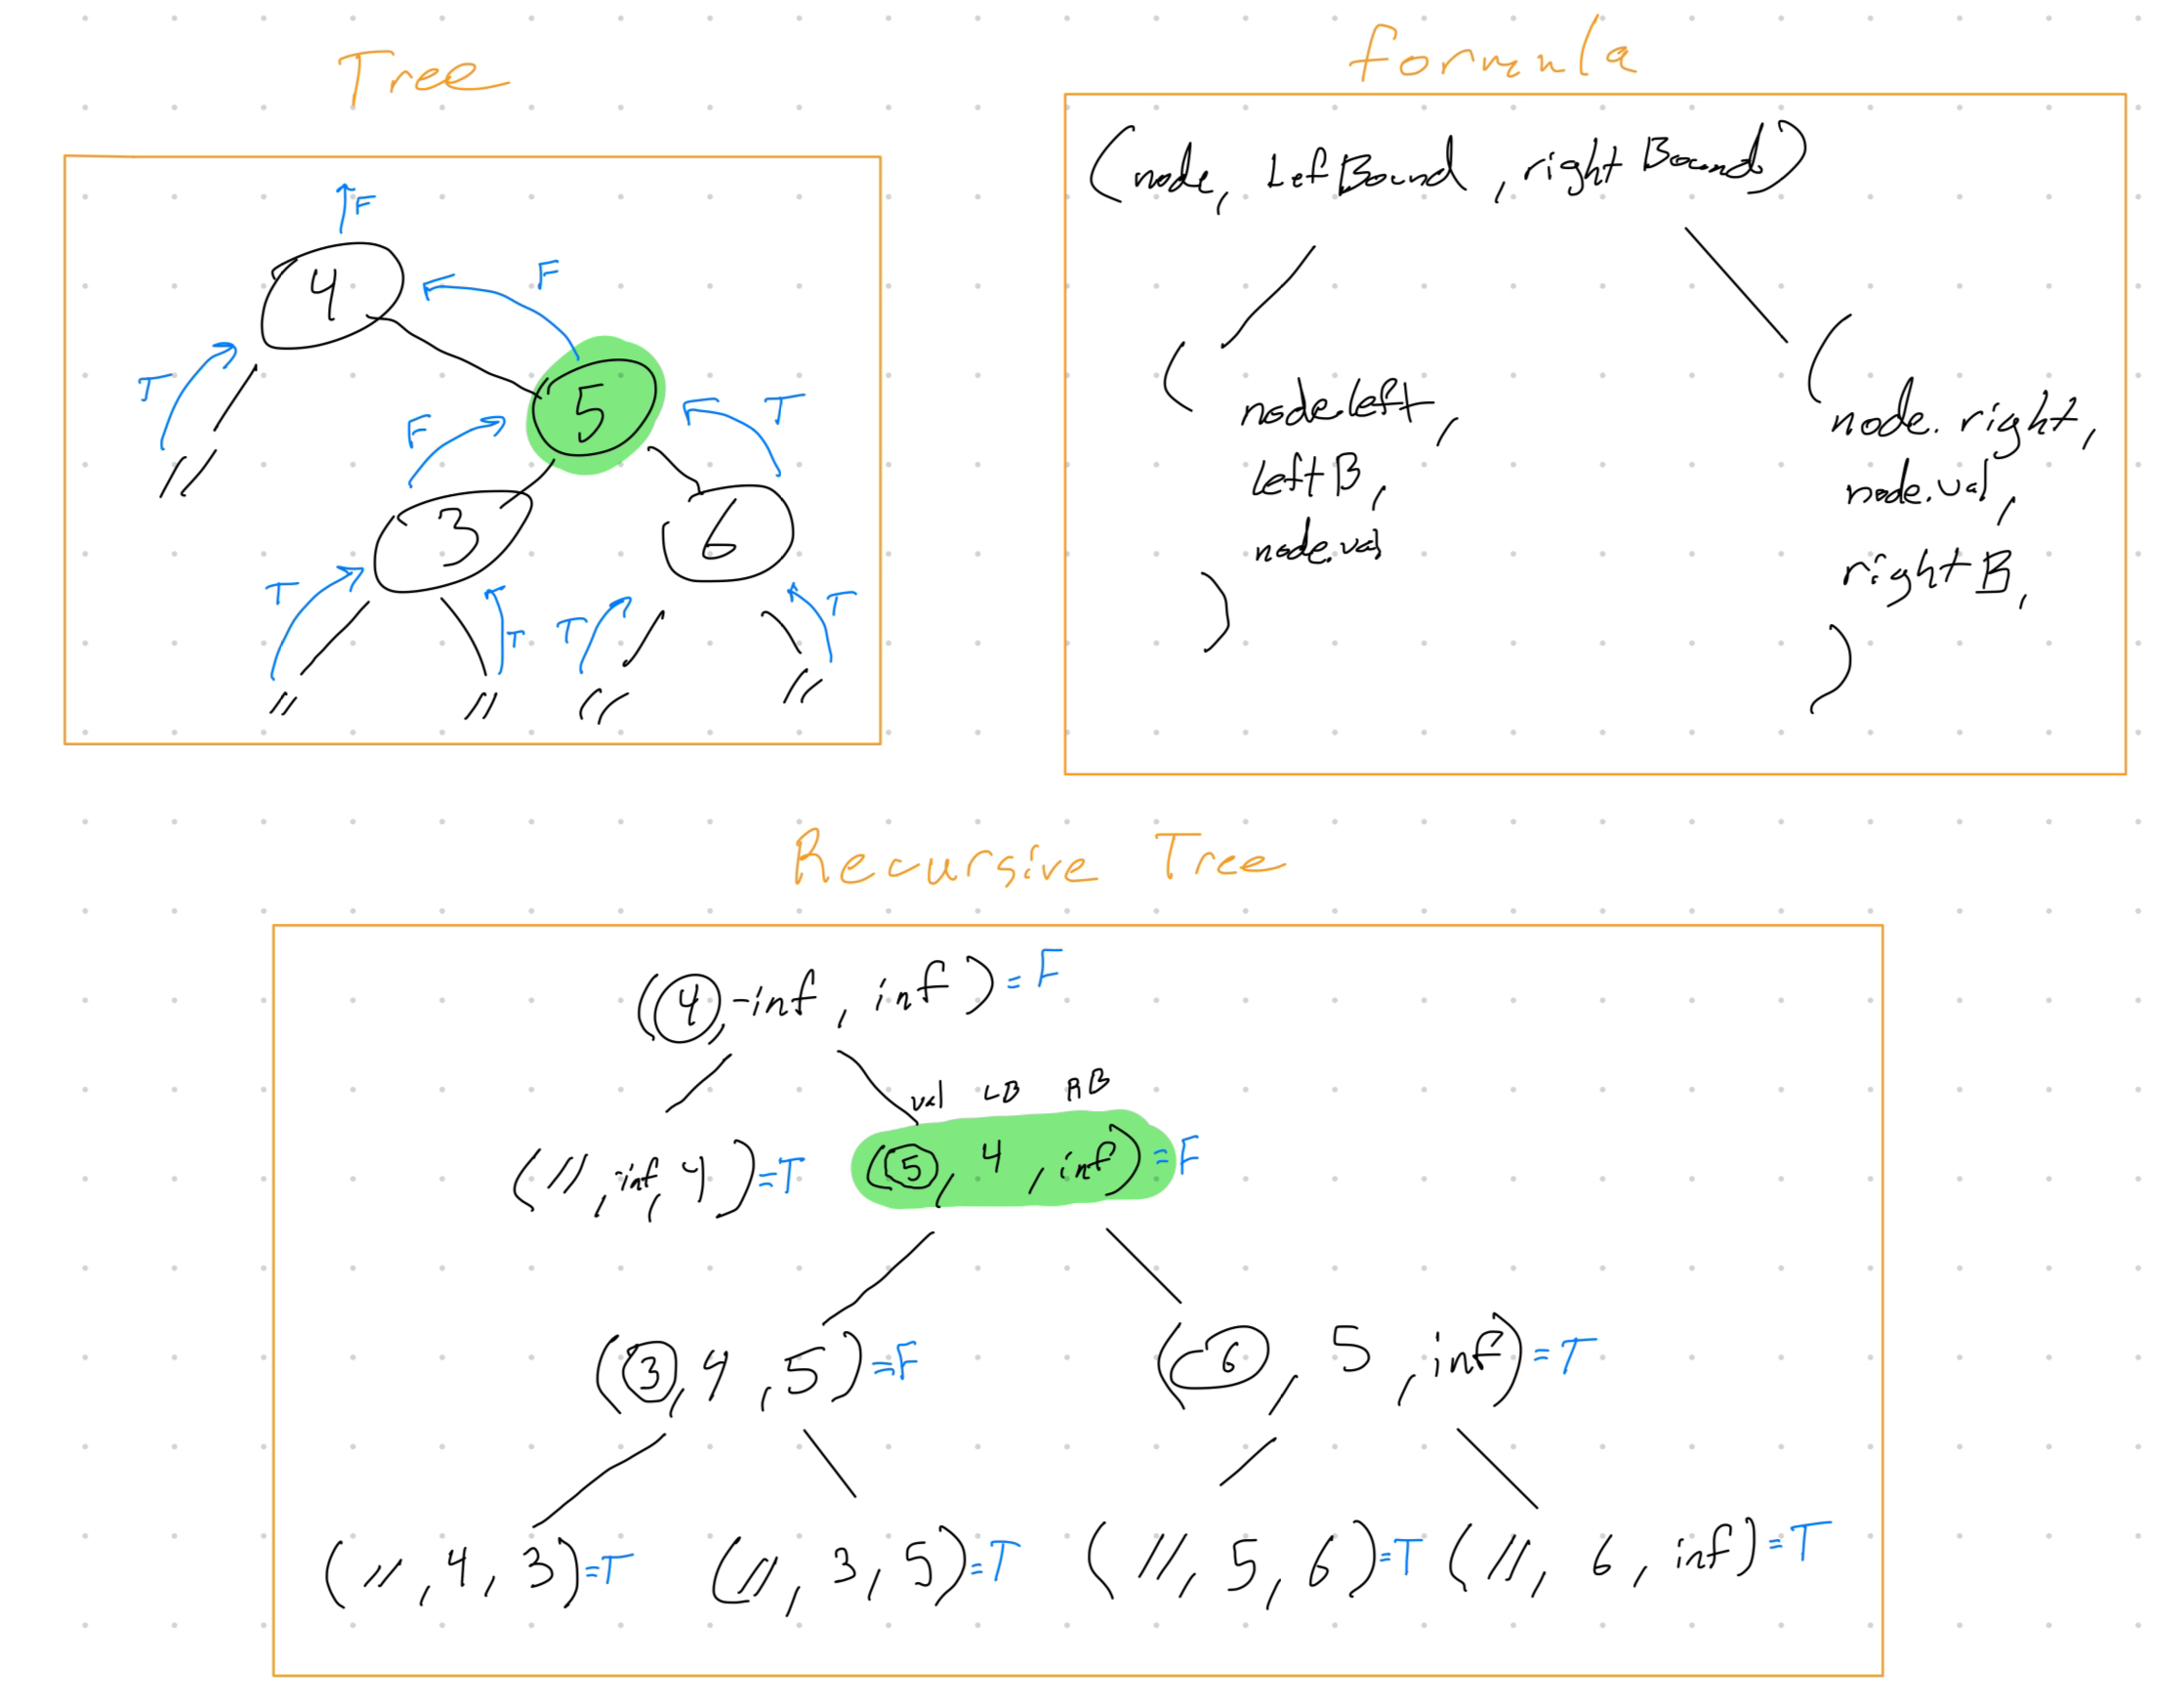 Tree
F
4
F
T
5
F
T
3
6
T
T
T
T
formula
(node, LefBound, right Bound)
(
node.left,
leftB,
node.val
)
(
node.right,
node.val,
rightB,
)
Recursive Tree
(4, -inf, inf) = F
val LB RB
(//, inf, 4) = T (5, 4, inf) = F
(3, 4, 5) = F (6, 5, inf) = T
(//, 4, 3) = T (//, 3, 5) = T (//, 5, 6) = T (//, 6, inf) = T